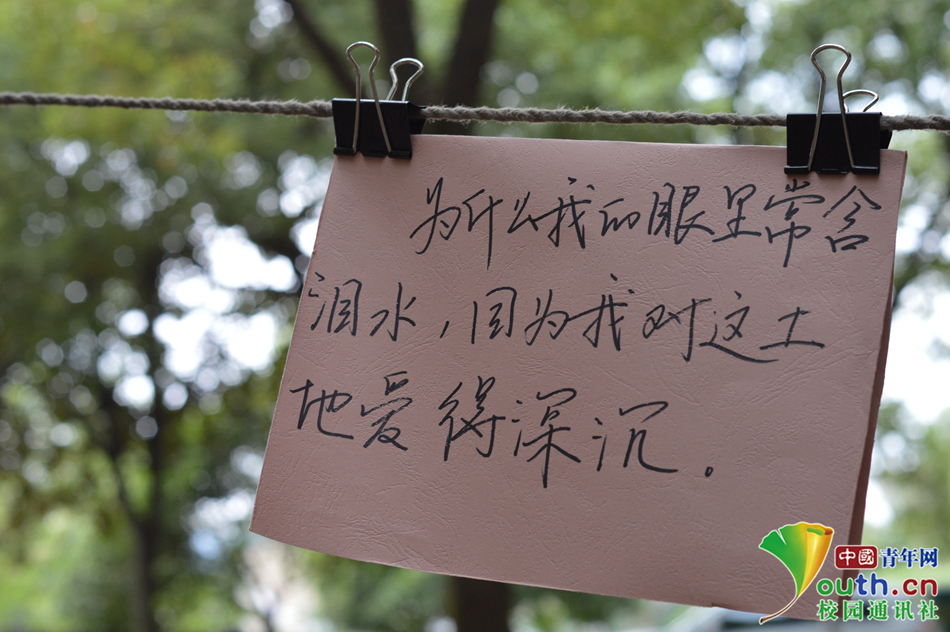 为什么我的眼里常含
泪水,因为我对这土
地爱得深沉。
中國青年网
outh.cn
校园通讯社